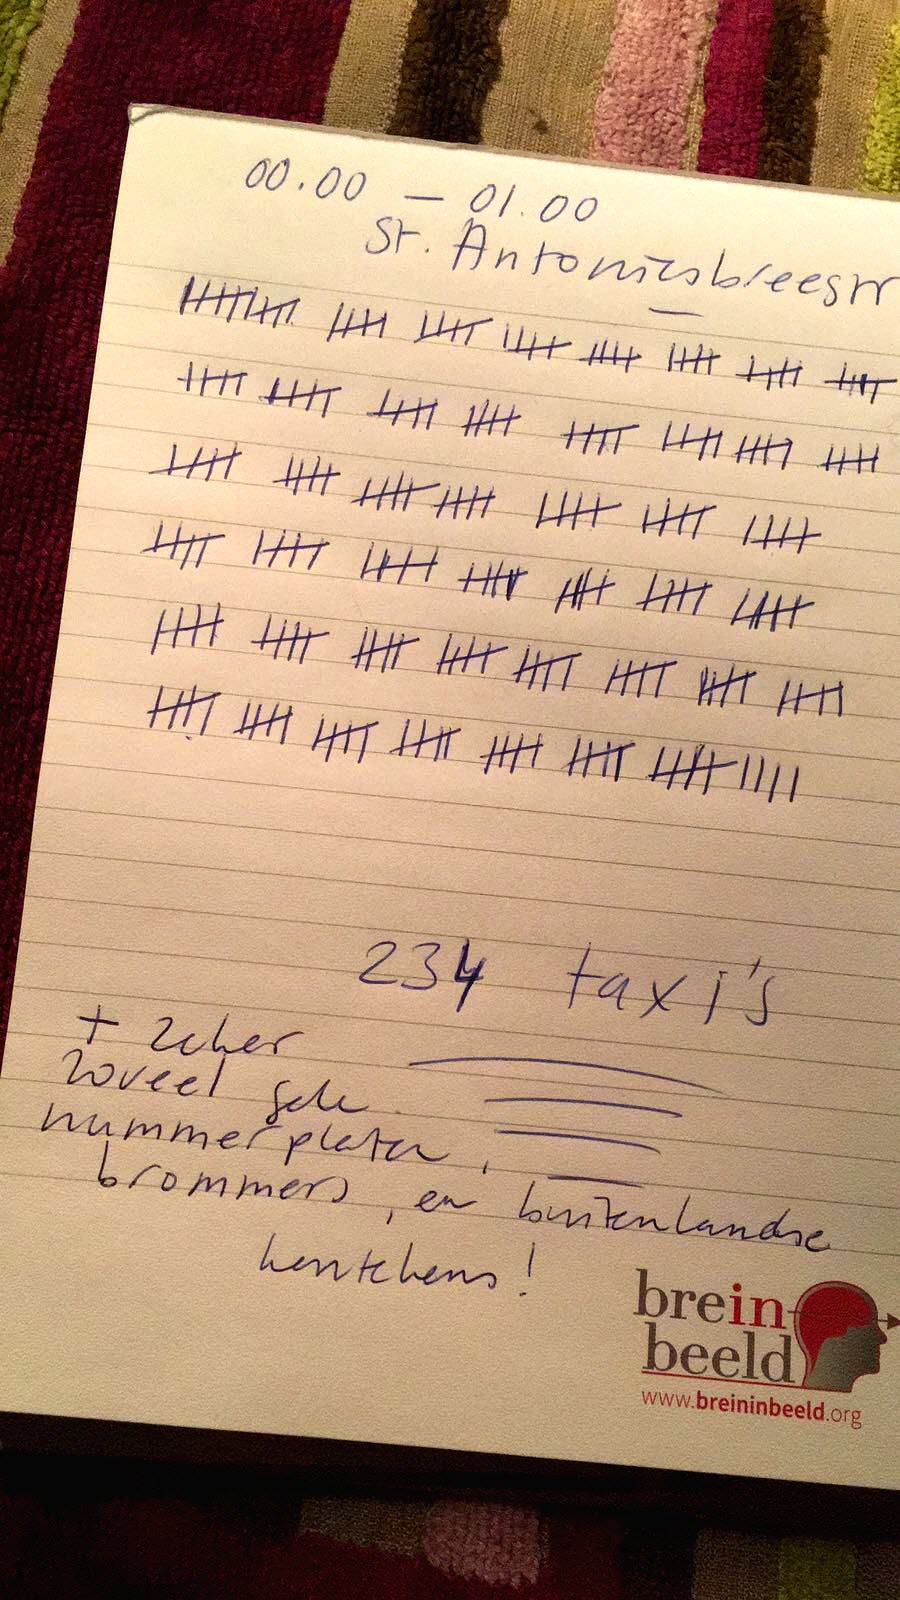 00.00 — 01.00
St. Antoniesbreestr
234 taxi's
+ zeker
zoveel gele
nummerplaten,
brommers, en buitenlandse
kentekens!
brein
beeld
www.breininbeeld.org